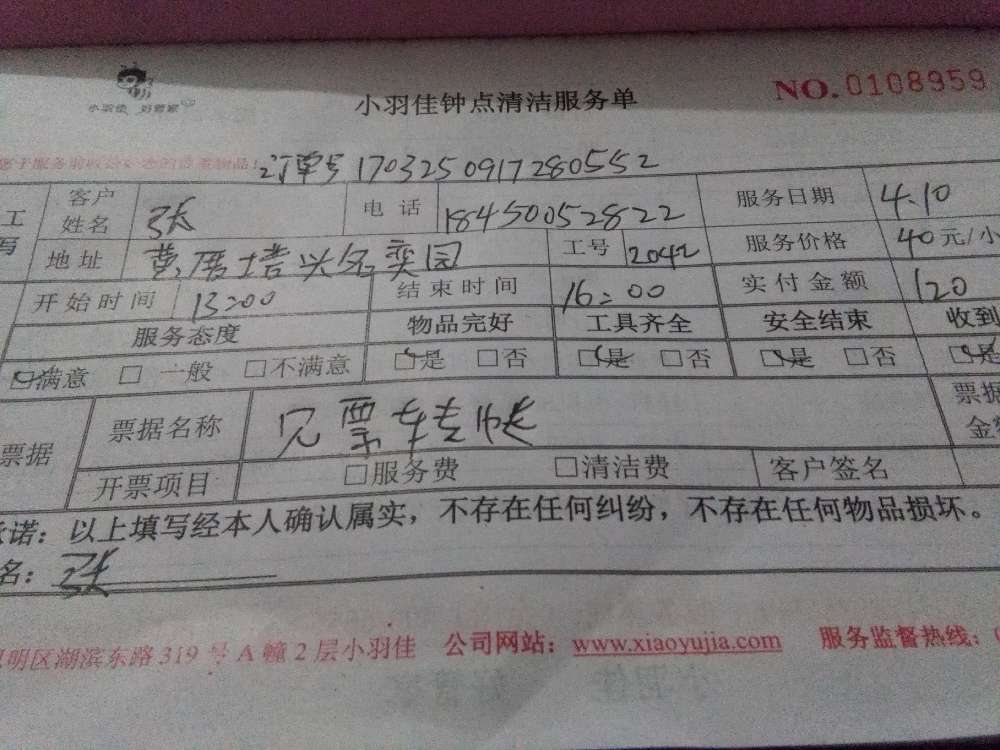 小羽佳 好管家
小羽佳钟点清洁服务单
NO.0108959
订单号 1703250917280552
工 客户姓名 张 电话 18450052822 服务日期 4.10
写 地址 工号 2042 服务价格 40元/小
开始时间 13:00 结束时间 16:00 实付金额 120
服务态度 物品完好 工具齐全 安全结束 收到
☑满意 □一般 □不满意 ☑是 □否 ☑是 □否 ☑是 □否 ☑是
票据 票据名称 见票转帐 票据金
开票项目 □服务费 □清洁费 客户签名
诺：以上填写经本人确认属实，不存在任何纠纷，不存在任何物品损坏。
名：张
明区湖滨东路319号A幢2层小羽佳 公司网站：www.xiaoyujia.com 服务监督热线：